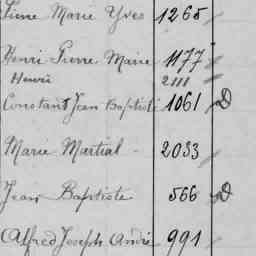 Pierre Marie Yves 1265
Henri Pierre Marie 1177
Henri 2111
Constant Jean Baptiste 1061 D
Marie Martial 2033
Jean Baptiste 566 D
Alfred Joseph André 991